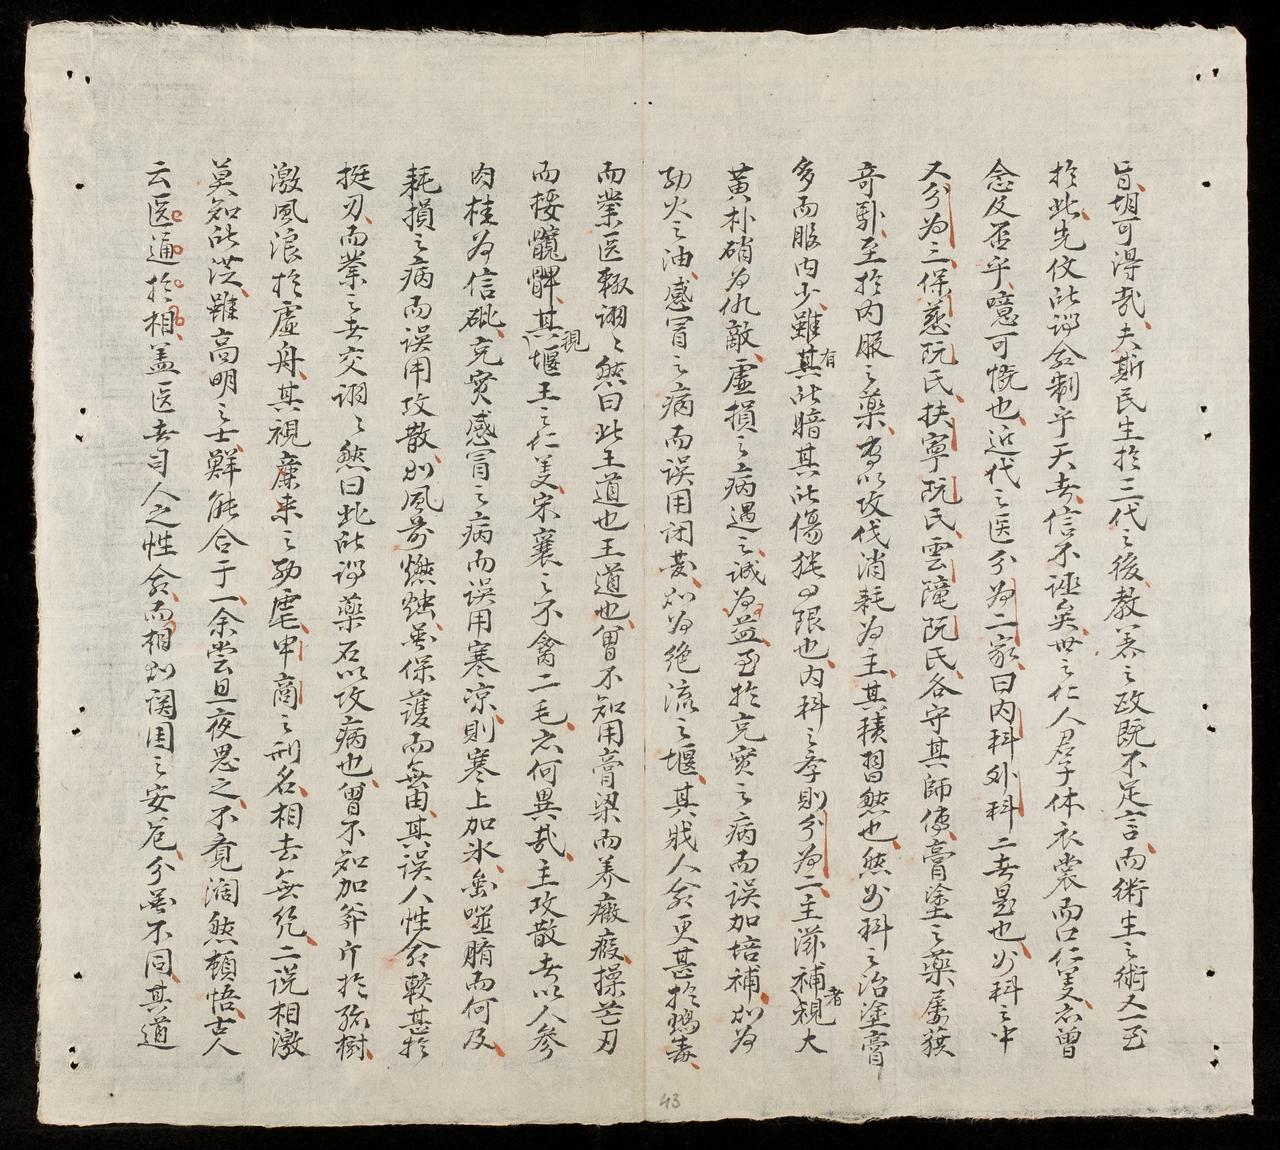 旨、胡可得哉、夫斯民生於三代之後、教养之政既不足言、而術生之術又一至
於此、先伩所谓命制乎天者、信不誣矣、世之仁人君子、休衣裳而口仁義、亦曾
念及否乎、噫可慨也、近代之医分為二家、曰内科外科二者是也、外科之中
又分為三、保慈阮氏、扶寧阮氏、雲䧺阮氏、各守其師傳、膏塗之藥、屡獲
奇驗、至於内服之藥、專以攻伐消耗為主、其積習然也、然外科之治、塗膏
多而服内少、雖有其所暗、其所傷猶可限也、内科之學、則分為二、主滋補者視大
黄朴硝為仇敵、虚損之病遇之、誠為益、至於充实之病、而误加培補、如為
劫火之油、感冒之病而误用闭塞、如為絶流之堰、其戕人命更甚於鴆毒、
而業医辄诩诩然曰此王道也王道也、曾不知用膏梁而养癥瘕、操芒刃
而𢱢髖髀、其視堰王之仁義、宋襄之不禽二毛、亦何異哉、主攻散者以人參
肉桂為信砒、充实感冒之病而误用寒凉、則寒上加氷、嵗噬臍而何及、
耗損之病而误用攻散、如風前燃烛、虽保護而無由、其误人性命較甚於
挺刃、而業之者交诩诩然曰此所谓藥石以攻病也、曾不知加斧斤於孤樹、
激風浪於虚舟、其視廉来之助虐、申商之刑名、相去無几、二说相激
莫知所從、雖高明之士、鮮能合于一、余嘗旦夜思之、不竟濶然頓悟、古人
云医通於相、盖医者司人之性命、而相如誤國之安危、分虽不同、其道